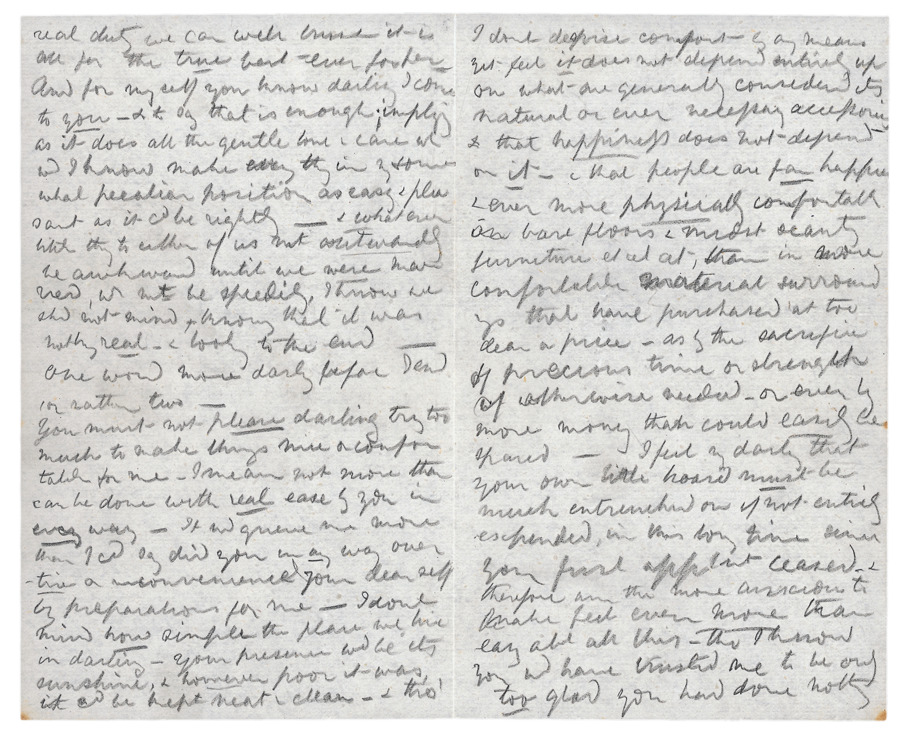 real duty we can well trust it is
all for the true best ever for her
And for myself you know darling I come
to you - & to say that is enough, implying
as it does all the gentle love & care wh
wd I know make every thing in yr some
what peculiar position as easy & plea
sant as it cd be rightly — & whatever
little thg to either of us not outwardly
be awkward until we were mar
ried, wh mt be speedily, I know we
shd not mind, knowing that it was
nothg real - & lookg to the end —
One word more darlg before I end
or rather two —
You must not please darling try too
much to make things nice or comfor
table for me - I mean not more than
can be done with real ease by you in
every way - It wd grieve me more
than I cd say did you in any way over
tire or inconvenience your dear self
by preparations for me — I don't
mind how simple the place we live
in darling - your presence wd be its
sunshine, & however poor it was,
it cd be kept neat & clean - & tho'
I dont despise comfort by any means
yet feel it does not depend entirely up
on what are generally considered its
natural or even necessary accessories
& that happiness does not depend
on it - & that people are far happier
& ever more physically comfortable
on bare floors & most scanty
furniture, than in more
comfortable material surround
gs that have purchased at too
dear a price - as by the sacrifice
of precious time or strength
if otherwise needed - or even by
more money than could easily be
spared — I feel my darlg that
your own little hoard must be
much entrenched on if not entirely
expended, in this long time since
your first apptmt ceased - &
therefore am the more anxious to
make feel even more than
easy abt all this - tho' I know
you wd have trusted me to be only
too glad you had done nothg